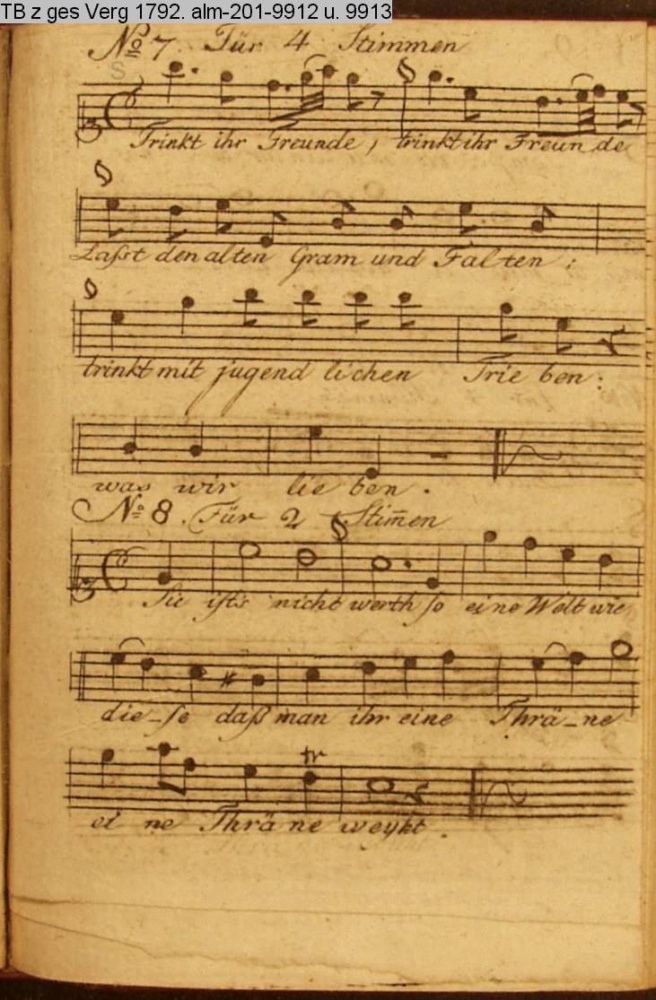 TB z ges Verg 1792. alm-201-9912 u. 9913
No 7. Für 4 Stimmen
Trinkt ihr Freunde, trinkt ihr Freunde
Lasst den alten Gram und Falten:
trinkt mit jugend lichen Trie ben:
was wir lie ben.
No 8. Für 2 Stim̅en
Sie ist's nicht werth so eine Welt wie
die-se daß man ihr eine Thrä-ne
tr
ei ne Thrä ne weyht.